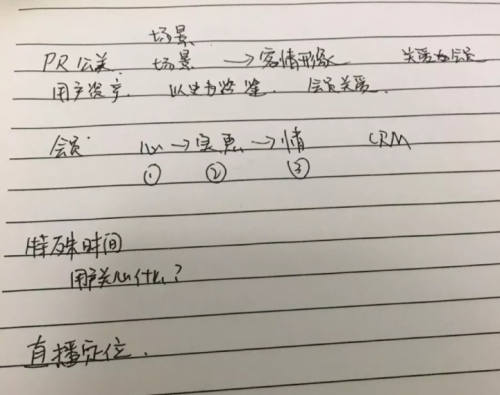 场景
PR公关 场景 → 客情形象 关爱加会员
用户资产. 以史为鉴. 会员关爱.
会员. → 实惠 → 情 CRM
① ② ③
特殊时间
用户关心什么?
直播定位.